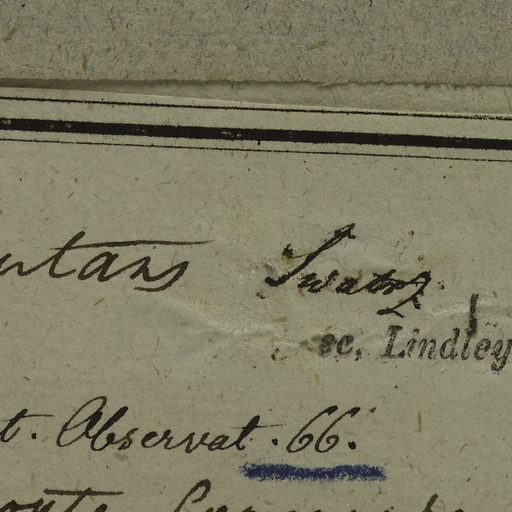 utans Swartz
sc. Lindley
t. Observat. 66.